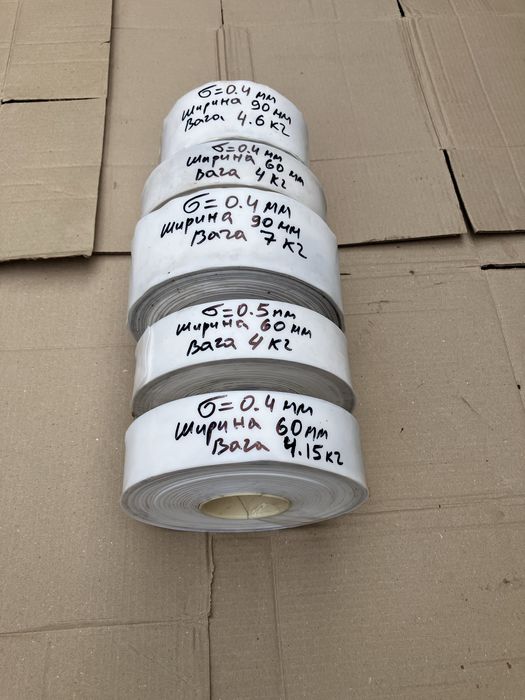 σ=0.4 мм
ширина 90 мм
Вага 4.6 кг
σ=0.4 мм
ширина 60 мм
Вага 4 кг
σ=0.4 мм
ширина 90 мм
Вага 7 кг
σ=0.5 мм
ширина 60 мм
Вага 4 кг
σ=0.4 мм
ширина 60 мм
Вага 4.15 кг